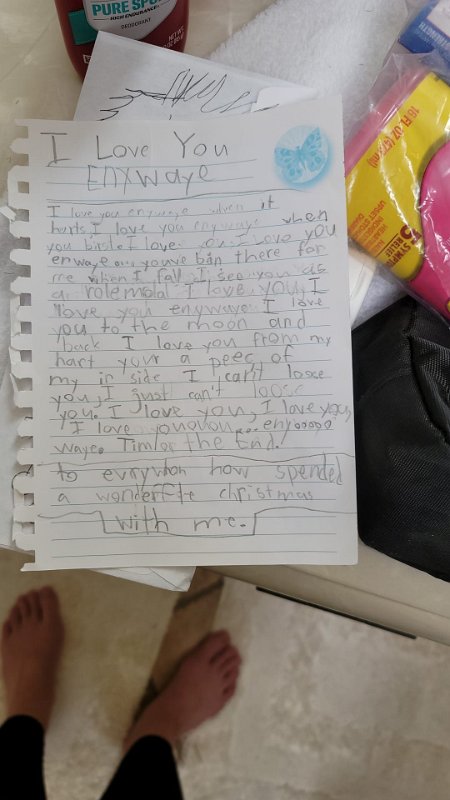 PURE SPORT
HIGH ENDURANCE
DEODORANT
I Love You
Enywaye
I love you enywaye when it
hurts I love you enywaye when
you I love I love you
enwaye youve bin there for
me when I fall I see you as
a rolemolal I love you I
love you enywaye I love
you to the moon and
back I love you from my
hart your a peec of
my in side I can't loose
you I just can't loose
you. I love you, I love you,
I love
waye. the End!
to evrywhon how spended
a christmas
with me.
16 FL OZ (473 ml)
UPSET STOMACH
5
SYMPTOM
RELIEF